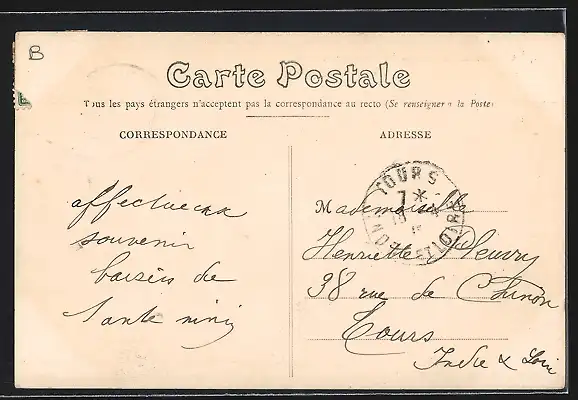 B
Carte Postale
Tous les pays étrangers n'acceptent pas la correspondance au recto (Se renseigner a la Poste)
CORRESPONDANCE
ADRESSE
affectueux
souvenir
baisers de
Tante nini
TOURS
7 *
INDRE ET LOIRE
Mademoiselle
Henriette Fleury
38 rue de Chinon
Tours
Indre & Loire